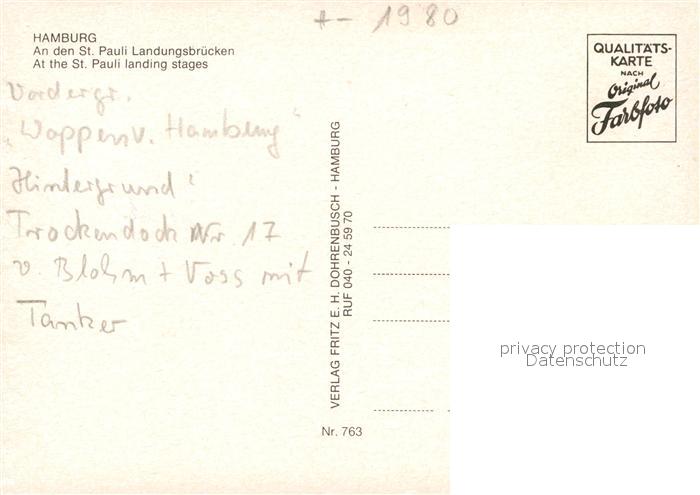 +- 1980
HAMBURG
An den St. Pauli Landungsbrücken
At the St. Pauli landing stages
QUALITÄTS-
KARTE
NACH
Original
Farbfoto
Vordergr.
„Wappen v. Hamburg"
Hintergrund:
Trockendock Nr. 17
v. Blohm + Voss mit
Tanker
VERLAG FRITZ E. H. DOHRENBUSCH - HAMBURG
RUF 040 - 24 59 70
privacy protection
Datenschutz
Nr. 763